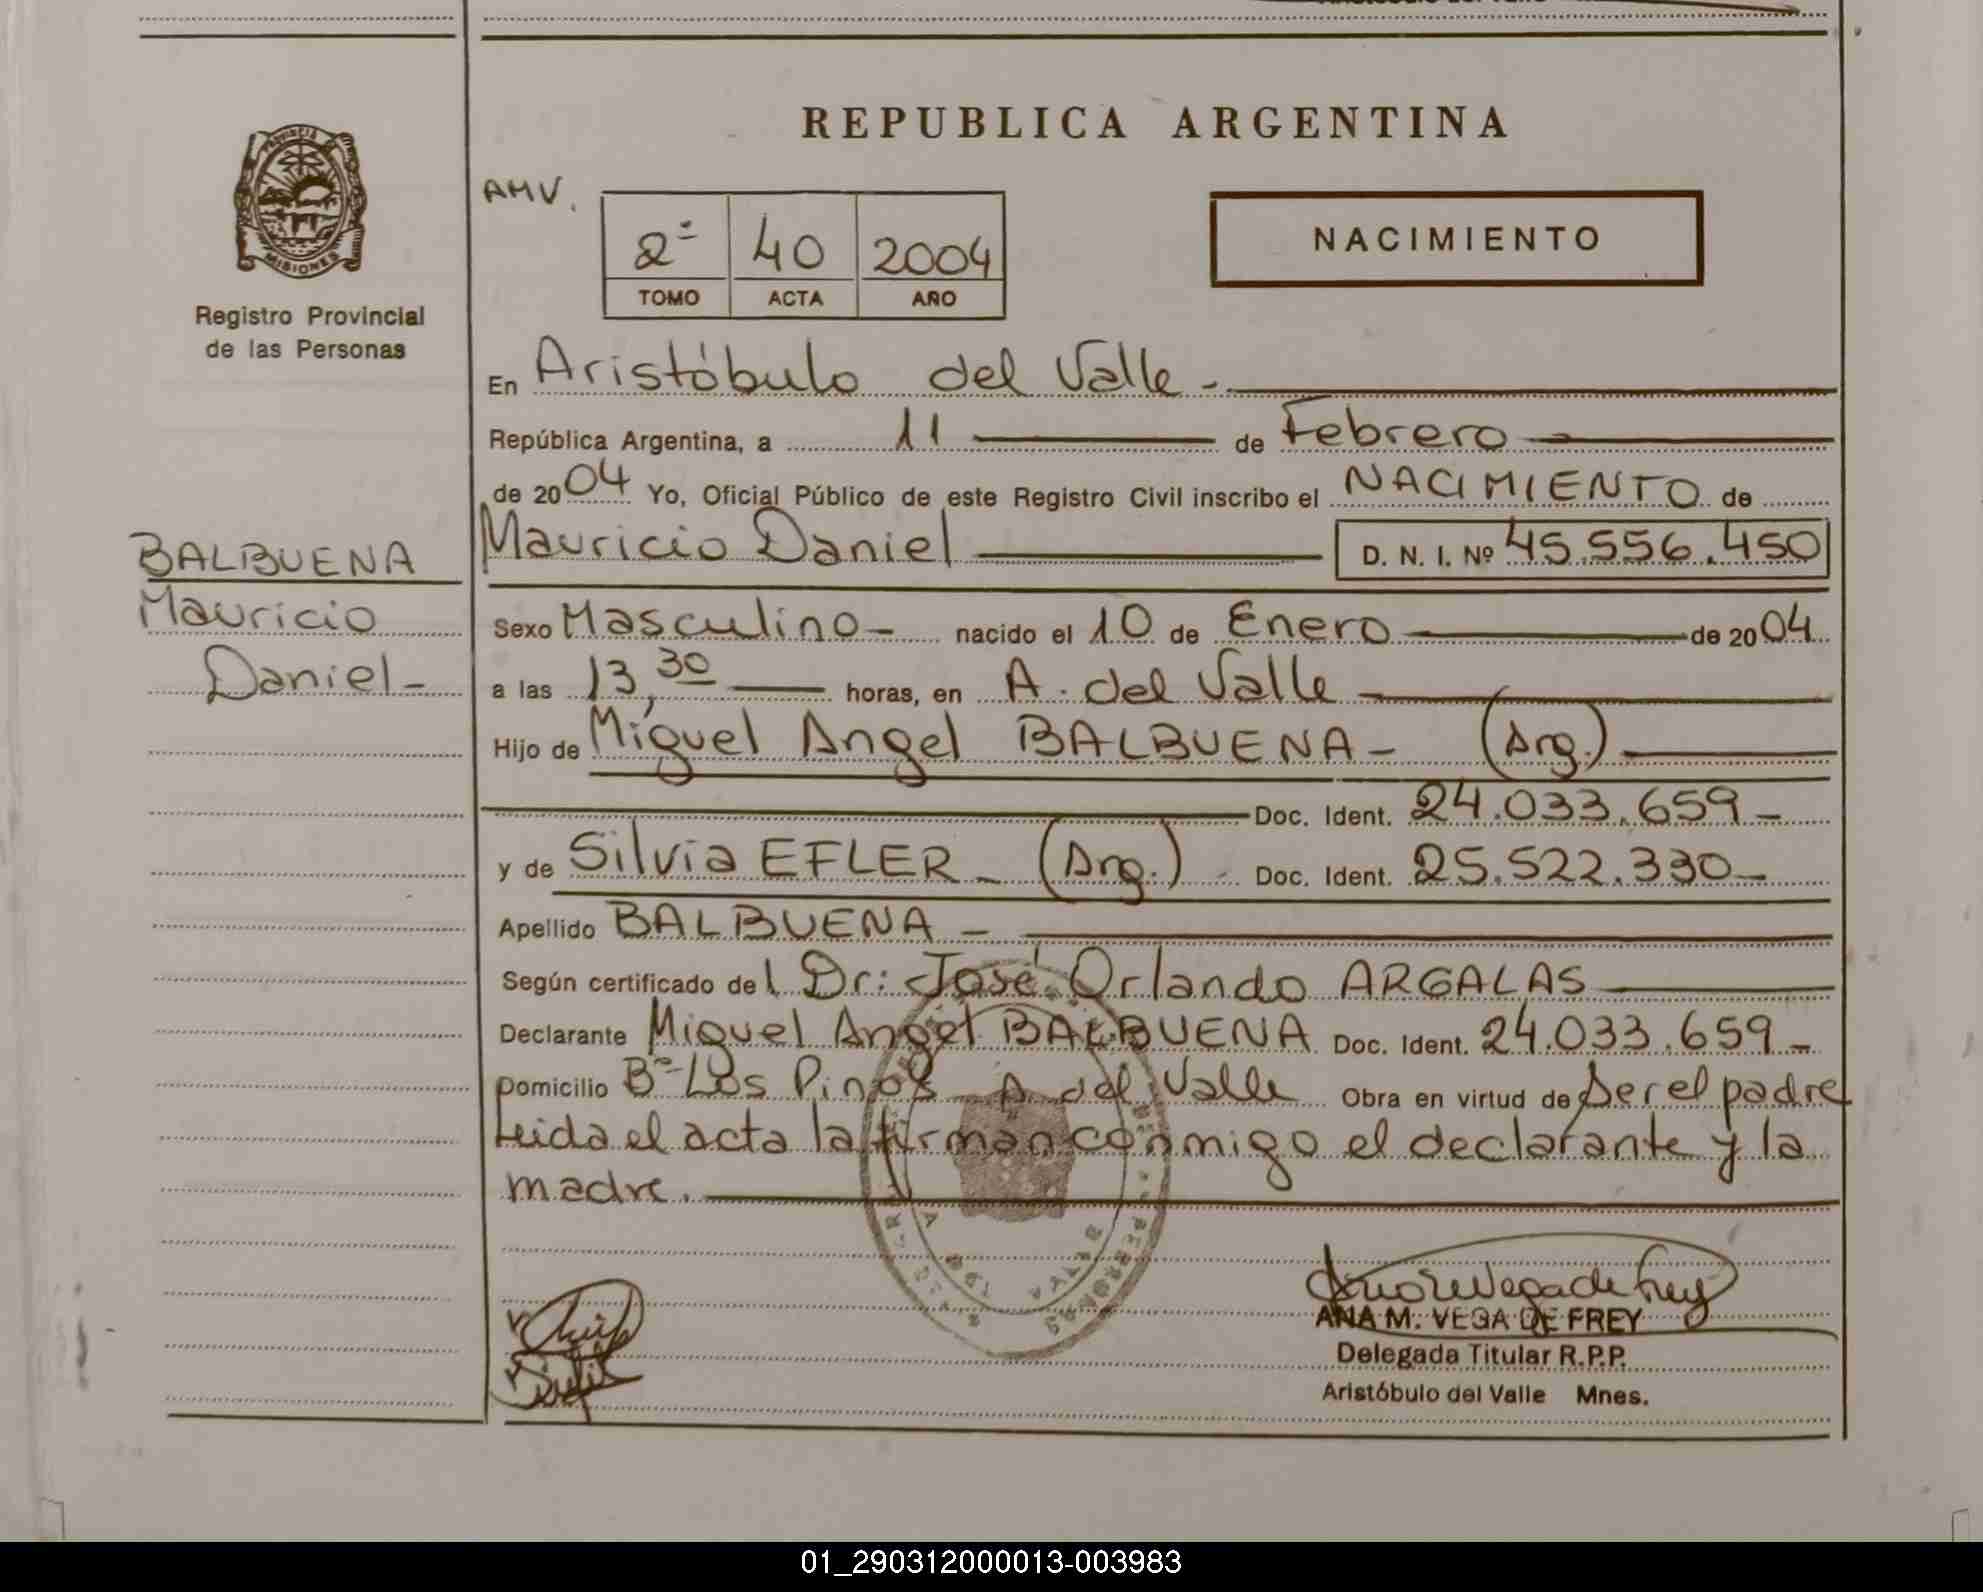 REPUBLICA ARGENTINA
PROVINCIA
MISIONES
Registro Provincial
de las Personas
AMV.
2º 40 2004
TOMO ACTA AÑO
NACIMIENTO
En Aristóbulo del Valle -
República Argentina, a 11 de Febrero
de 2004 Yo, Oficial Público de este Registro Civil inscribo el NACIMIENTO de
BALBUENA
Mauricio
Daniel -
Mauricio Daniel D. N. I. Nº 45.556.450
Sexo Masculino - nacido el 10 de Enero de 2004
a las 13,30 horas, en A. del Valle
Hijo de Miguel Angel BALBUENA - (Arg.)
Doc. Ident. 24.033.659 -
y de Silvia EFLER - (Arg.) Doc. Ident. 25.522.330 -
Apellido BALBUENA -
Según certificado del Dr: José Orlando ARGALAS
Declarante Miguel Angel BALBUENA Doc. Ident. 24.033.659 -
Domicilio Bº Los Pinos - A del Valle Obra en virtud de Ser el padre
Leida el acta la firman conmigo el declarante y la
madre.
ANA M. VEGA DE FREY
Delegada Titular R.P.P.
Aristóbulo del Valle Mnes.
01_290312000013-003983